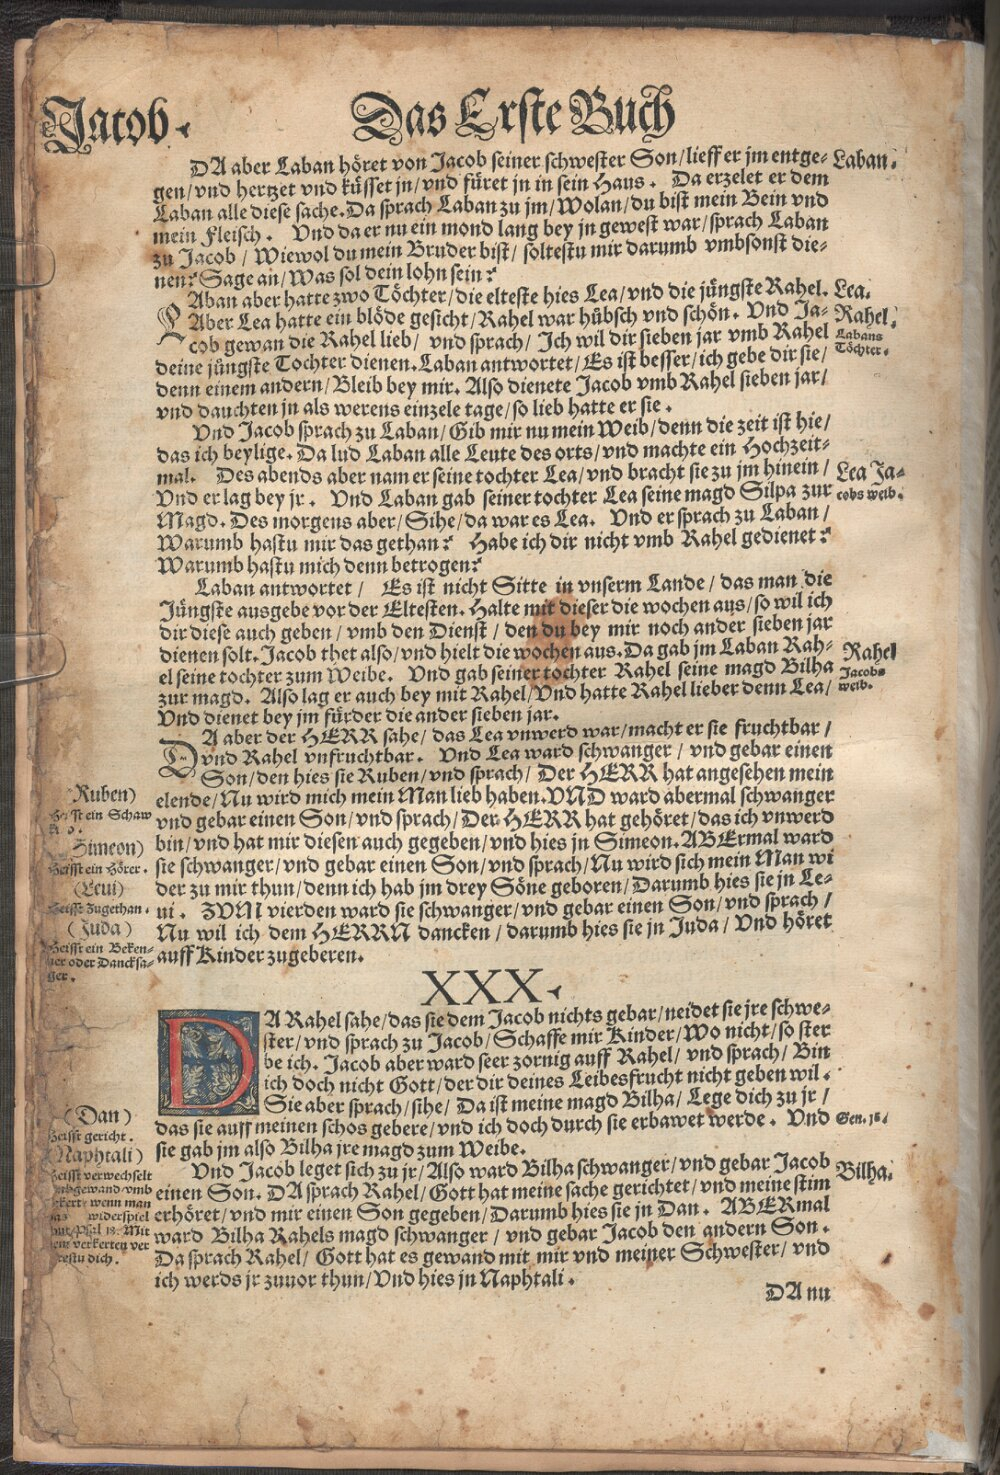 Jacob.
Das Erste Buch
DA aber Laban höret von Jacob seiner schwester Son/lieff er jm entge-
gen/vnd hertzet vnd küsset jn/vnd füret jn in sein Haus. Da erzelet er dem
Laban alle diese sache. Da sprach Laban zu jm/Wolan/du bist mein Bein vnd
mein Fleisch. Vnd da er nu ein mond lang bey jn gewest war/sprach Laban
zu Jacob/Wiewol du mein Bruder bist/soltestu mir darumb vmbsonst die-
nen? Sage an/Was sol dein lohn sein?
LAban aber hatte zwo Töchter/die elteste hies Lea/vnd die jüngste Rahel.
Aber Lea hatte ein blöde gesicht/Rahel war hübsch vnd schön. Vnd Ja-
cob gewan die Rahel lieb/vnd sprach/Ich wil dir sieben jar vmb Rahel
deine jüngste Tochter dienen. Laban antwortet/Es ist besser/ich gebe dir sie/
denn einem andern/Bleib bey mir. Also dienete Jacob vmb Rahel sieben jar/
vnd dauchten jn als werens einzele tage/so lieb hatte er sie.
Vnd Jacob sprach zu Laban/Gib mir nu mein Weib/denn die zeit ist hie/
das ich beylige. Da lud Laban alle Leute des orts/vnd machte ein Hochzeit-
mal. Des abends aber nam er seine tochter Lea/vnd bracht sie zu jm hinein/
Vnd er lag bey jr. Vnd Laban gab seiner tochter Lea seine magd Silpa zur
Magd. Des morgens aber/Sihe/da war es Lea. Vnd er sprach zu Laban/
Warumb hastu mir das gethan? Habe ich dir nicht vmb Rahel gedienet?
Warumb hastu mich denn betrogen?
Laban antwortet/Es ist nicht Sitte in vnserm Lande/das man die
Jüngste ausgebe vor der Eltesten. Halte mit dieser die wochen aus/so wil ich
dir diese auch geben/vmb den Dienst/den du bey mir noch ander sieben jar
dienen solt. Jacob thet also/vnd hielt die wochen aus. Da gab jm Laban Rah-
el seine tochter zum Weibe. Vnd gab seiner tochter Rahel seine magd Bilha
zur magd. Also lag er auch bey mit Rahel/Vnd hatte Rahel lieber denn Lea/
Vnd dienet bey jm fürder die ander sieben jar.
DA aber der HERR sahe/das Lea vnwerd war/macht er sie fruchtbar/
vnd Rahel vnfruchtbar. Vnd Lea ward schwanger/vnd gebar einen
Son/den hies sie Ruben/vnd sprach/Der HERR hat angesehen mein
elende/Nu wird mich mein Man lieb haben. VND ward abermal schwanger
vnd gebar einen Son/vnd sprach/Der HERR hat gehöret/das ich vnwerd
bin/vnd hat mir diesen auch gegeben/vnd hies jn Simeon. ABErmal ward
sie schwanger/vnd gebar einen Son/vnd sprach/Nu wird sich mein Man wi
der zu mir thun/denn ich hab jm drey Söne geboren/Darumb hies sie jn Le-
ui. ZVM vierden ward sie schwanger/vnd gebar einen Son/vnd sprach/
Nu wil ich dem HERRN dancken/darumb hies sie jn Juda/Vnd höret
auff Kinder zugeberen.
Laban.
Lea.
Rahel.
Labans
Töchter.
Lea Ja-
cobs weib.
Rahel
Jacobs
weib.
(Ruben)
ein Schaw
Simeon)
Heisst ein Hörer.
(Leui)
Heisst Zugethan.
(Juda)
Heisst ein Beken-
ner oder Dancksa-
ger.
XXX.
DA Rahel sahe/das sie dem Jacob nichts gebar/neidet sie jre schwe-
ster/vnd sprach zu Jacob/Schaffe mir Kinder/Wo nicht/so ster
be ich. Jacob aber ward seer zornig auff Rahel/vnd sprach/Bin
ich doch nicht Gott/der dir deines Leibesfrucht nicht geben wil.
Sie aber sprach/sihe/Da ist meine magd Bilha/Lege dich zu jr/
das sie auff meinen schos gebere/vnd ich doch durch sie erbawet werde. Vnd
sie gab jm also Bilha jre magd zum Weibe.
Vnd Jacob leget sich zu jr/Also ward Bilha schwanger/vnd gebar Jacob
einen Son. DA sprach Rahel/Gott hat meine sache gerichtet/vnd meine stim
erhöret/vnd mir einen Son gegeben/Darumb hies sie jn Dan. ABERmal
ward Bilha Rahels magd schwanger/vnd gebar Jacob den andern Son.
Da sprach Rahel/Gott hat es gewand mit mir vnd meiner Schwester/vnd
ich werds jr zuuor thun/Vnd hies jn Naphtali.
Gen. 16.
Bilha.
(Dan)
Heisst gericht.
(Naphtali)
Heisst verwechselt
vmbgewand vmb
kert/wenn man
das widerspiel
thut/Psal 18. Mit
verkerten ver
restu dich.
DA nu